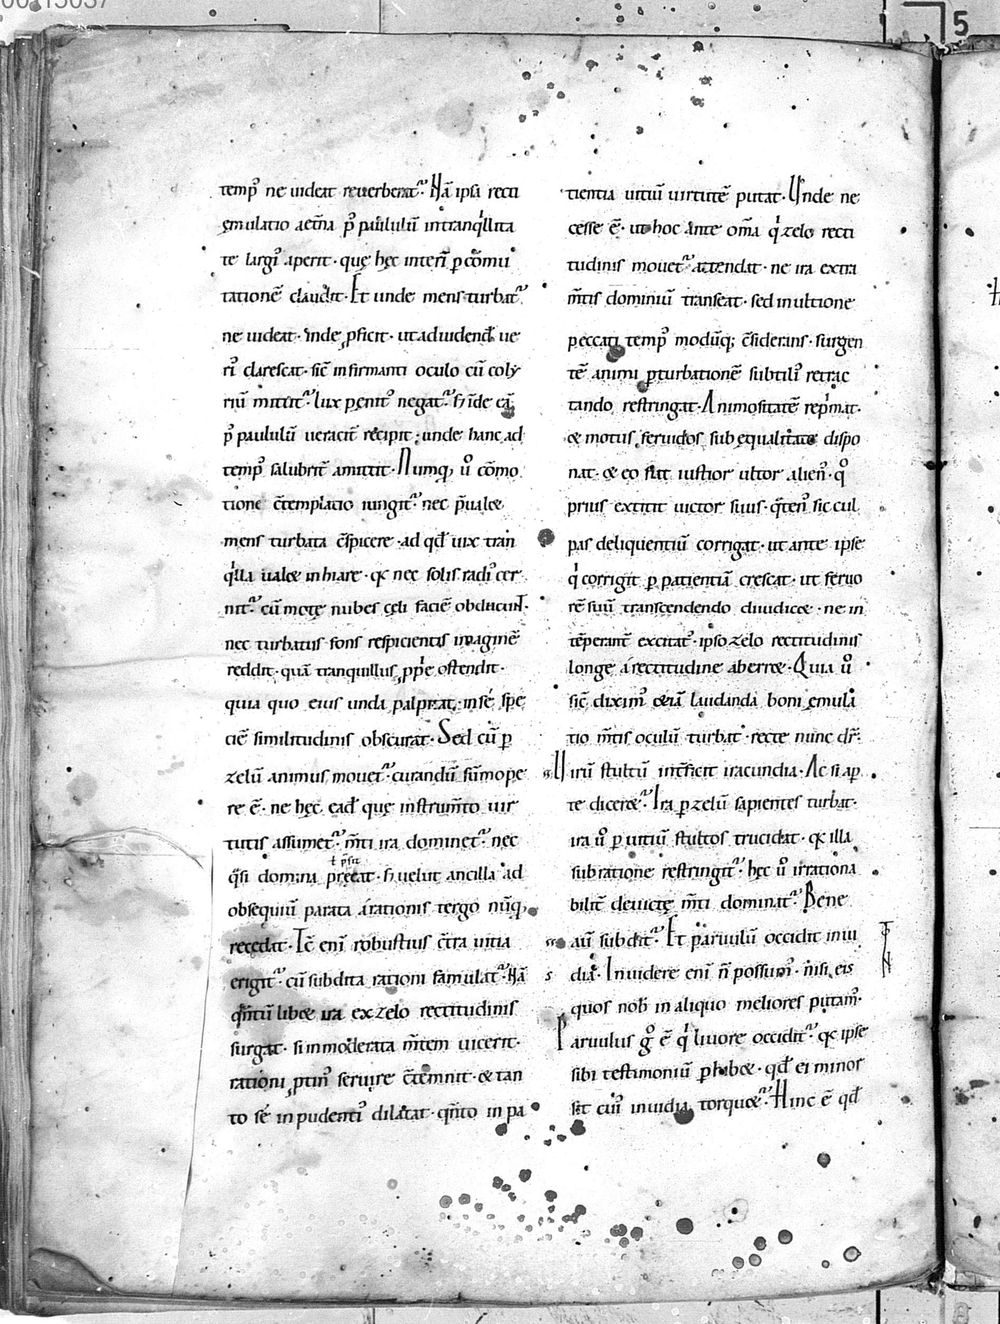 temp᷒ ne uideat reuerberat᷑. Nā ipsa recti
ęmulatio aetn̄a p᷒ paululū intranq̇llita
te largi᷒ aperit. quę hęc interī p cōmu
tationē claudit. Et unde mens turbat᷑
ne uideat. inde ꝓficit. ut ad uidend̄ ue
ri᷒ clarescat. sic̄ infirmanti oculo cū coly
riū mittit᷑ lux penit᷒ negat᷑. sꝫ īde eā
p᷒ paululū ueracit̄ recipit; unde hanc ad
temp᷒ salubrit̄ amittit. Numꝗ, u̅ cōmo
tione c̄templatio iungit᷑. nec p̄ualet
mens turbata c̄spicere. ad qd̄ uix tran
q̇lla ualet inhiare. qꝫ nec solis radi᷒ cer
nit᷑. cū motę nubes cęli faciē obducunt.
nec turbatus fons respicientis imaginē
reddit. quā tranquillus ꝓpe ostendit.
quia quo eius unda palpitat. in se spe
ciē similitudinis obscurat. Sed cū p
zelū animus mouet᷑. curandū sūmope
re ē. ne hęc ead̄ quę instrum̄to uir
tutis assumet᷑. m̄ti ira dominet᷑. nec
ł p̄sit
q̄si domina pręeat. sꝫ uelut ancilla ad
obsequiū parata a rationis tergo nūꝗ,
recedat. Tc̄ eni robustius c̄tra uitia
erigit᷑. cū subdita rationi famulat᷑. Nā
q̄ntū libet ira ex zelo rectitudinis
surgat. si inmoderata m̄tem uicerit.
rationi ꝓtin᷒ seruire c̄temnit. & tan
to se inpudenti᷒ dilatat. q̄nto inpa
tientia uitiū uirtutē putat. Unde ne
cesse ē. ut hoc ante om̄a q̇ zelo recti
tudinis mouet᷑ attendat. ne ira extra
m̄tis dominiū transeat. sed in ultione
peccati temp᷒ modūqꝫ c̄siderans. surgen
tē animi pturbationē subtili᷒ retrac
tando restringat. Animositatē rep̄mat.
& motus feruidos sub equalitate dispo
nat. & eo fiat iustior ultor alien᷒. q᷒
prius extitit uictor suus. q̄ten᷒ sic cul
pas deliquentiū corrigat. ut ante ipse
q̇ corrigit p patientiā crescat. ut feruo
rē suū transcendendo diiudicet. ne in
tēperant̄ excitat᷒. ipso zelo rectitudinis
longe a rectitudine aberret. Quia u̅
sic̄ dixim᷒ etiā laudanda boni ęmula
tio m̄tis oculū turbat. recte nunc dr̄.
Uirū stultū int̄ficit iracundia. Ac si ap
te diceret᷑. Ira p zelū sapientes turbat.
ira u̅ p uitiū stultos trucidat. qꝫ illa
sub ratione restringit᷑. hęc u̅ irrationa
bilit̄ deuictę m̄ti dominat᷑. Bene
aū subdit᷑. Et paruulū occidit inui
dia. Inuidere eni n̄ possum᷒. nisi eis
quos nob̄ in aliquo meliores putam᷒.
Paruulus g᷒ ē q̇ liuore occidit᷑. qꝫ ipse
sibi testimoniū phibet. qd̄ ei minor
sit cui᷒ inuidia torquet᷑. Hinc ē qd̄